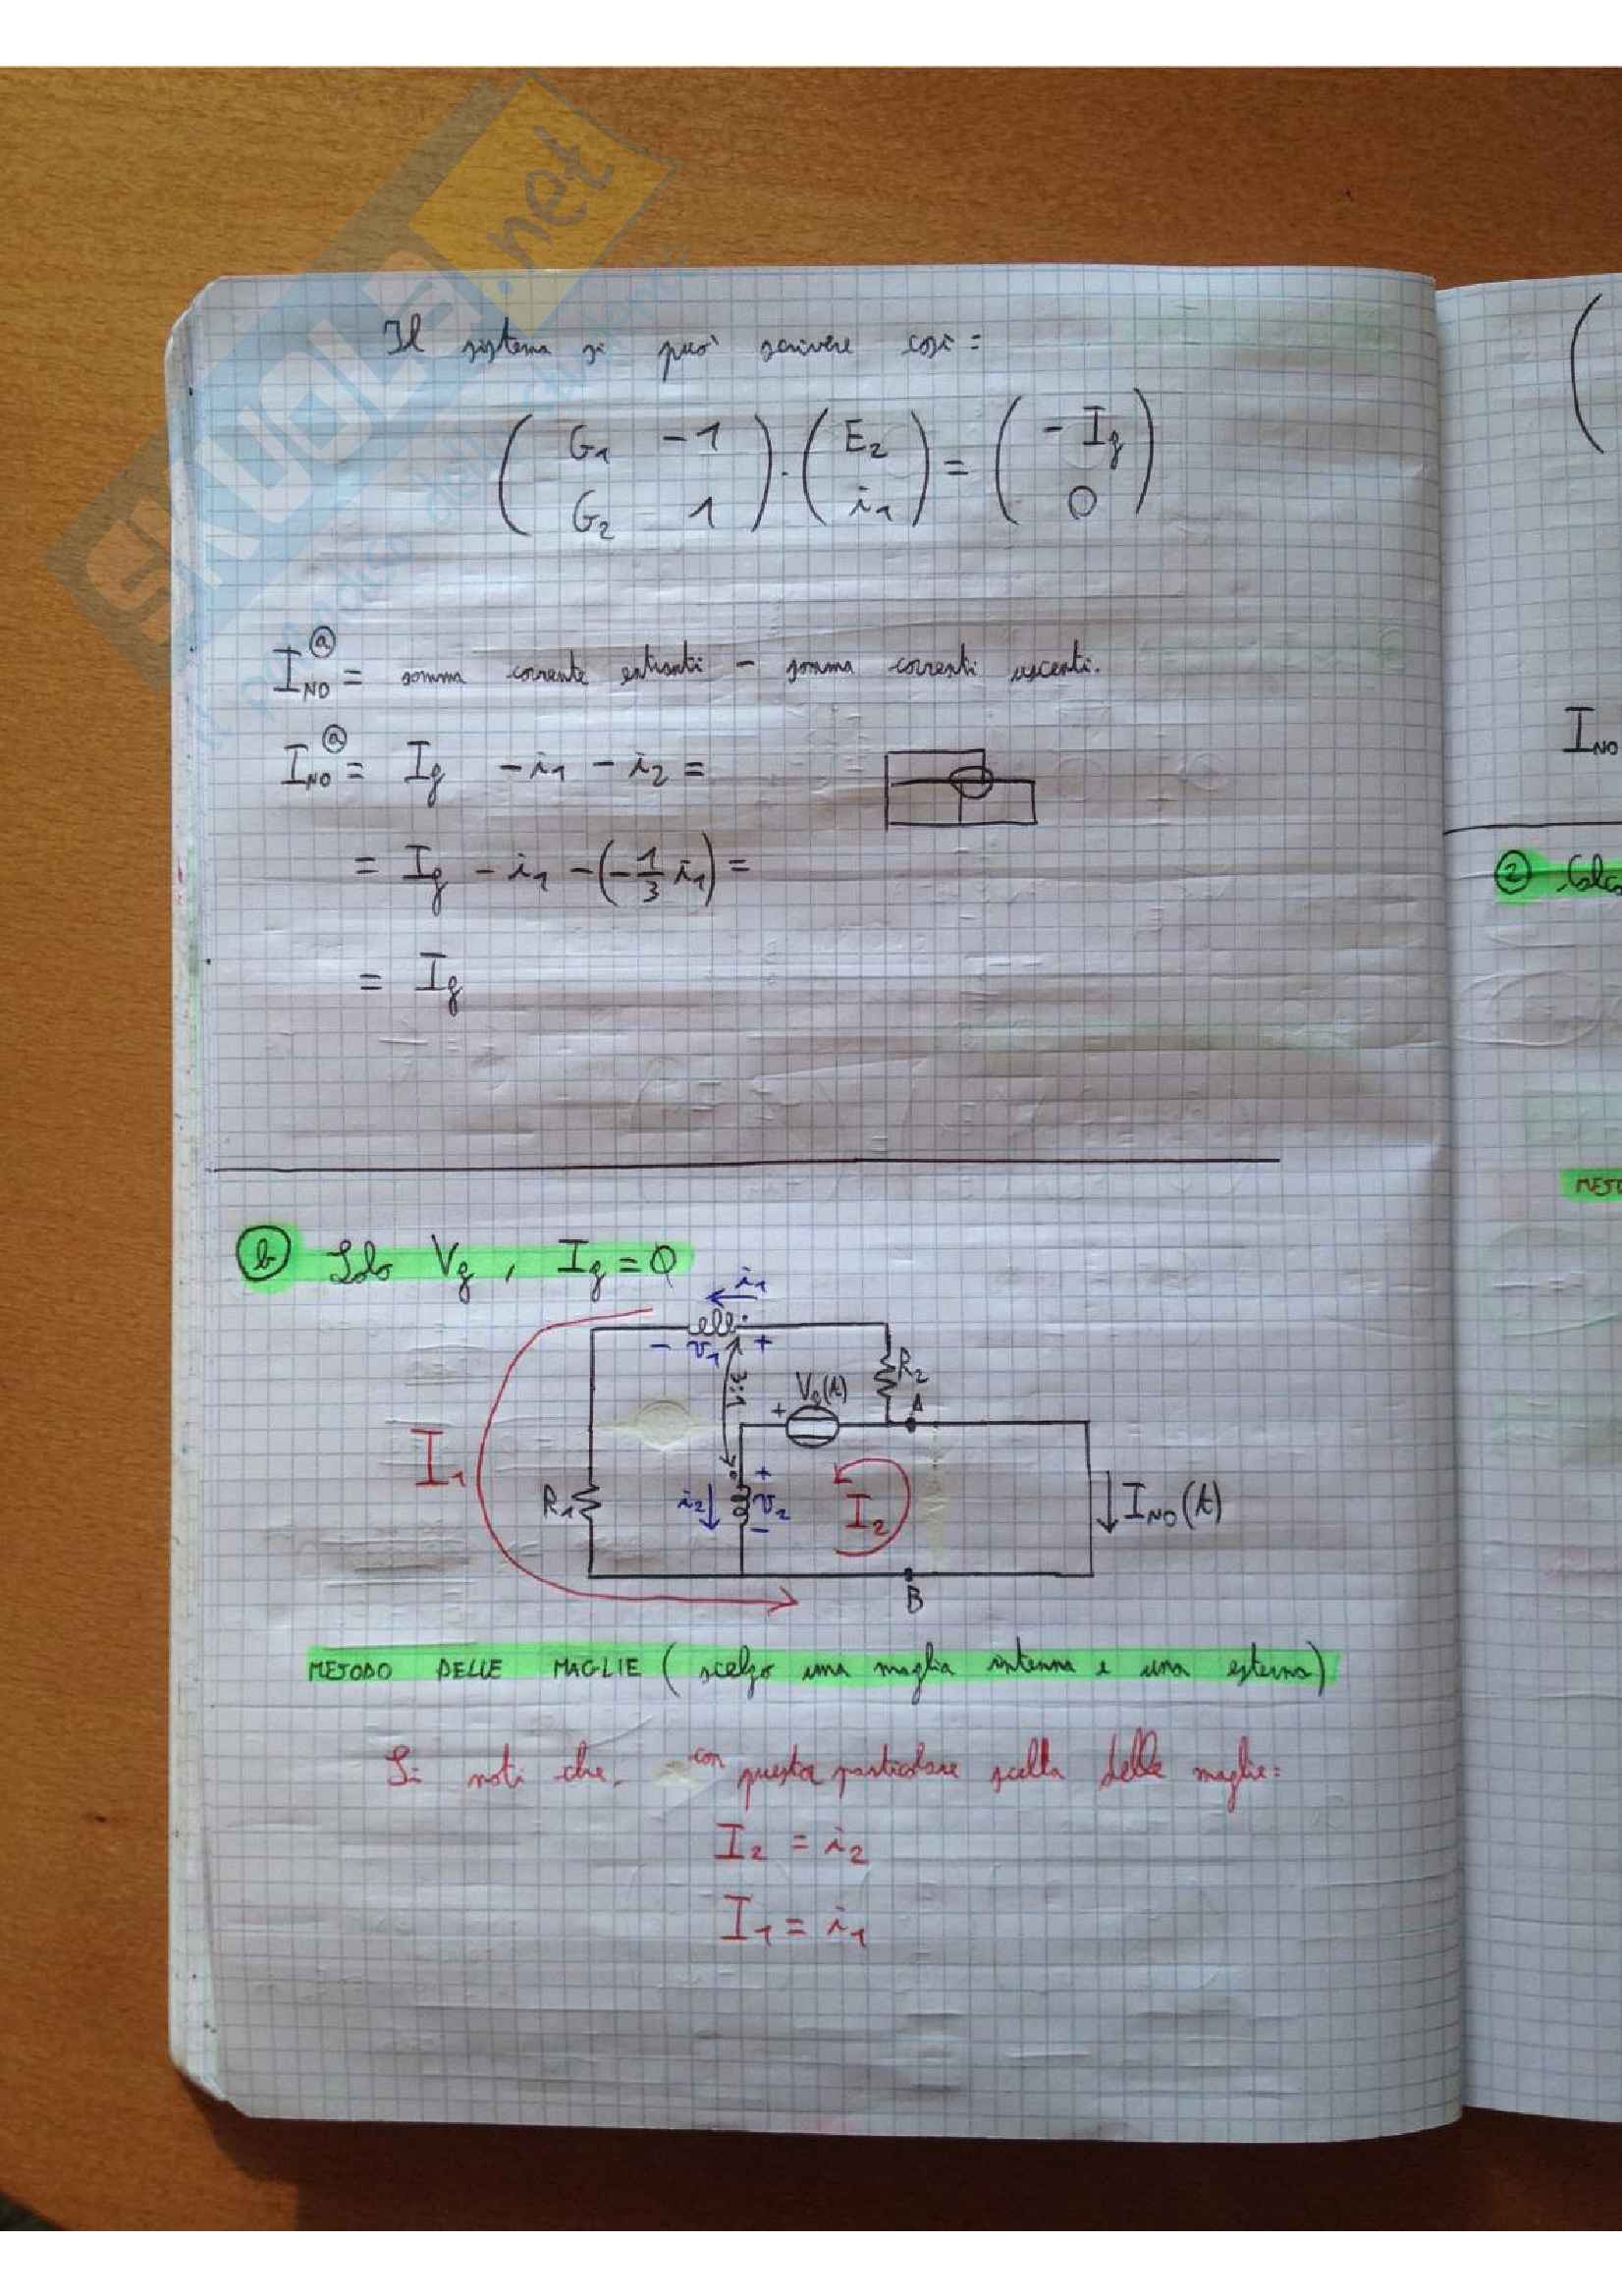 SKUOLA.net
Il sistema si può scrivere così:
( G1 -1 ) · ( E2 ) = ( - Ig )
( G2 1 ) ( i1 ) ( 0 )
INO ⓐ = somma corrente entranti - somma correnti uscenti.
INO ⓐ = Ig - i1 - i2 =
= Ig - i1 - (- 1/3 i1) =
= Ig
INO
② Calco
METO
ⓑ Solo Vg , Ig = 0
i1
- v1 +
R2
3:1
Vg(t)
+
A
I1
R1
i2
+
v2
-
I2
INO(t)
B
METODO DELLE MAGLIE ( scelgo una maglia interna e una esterna)
Si noti che con questa particolare scelta delle maglie:
I2 = i2
I1 = i1